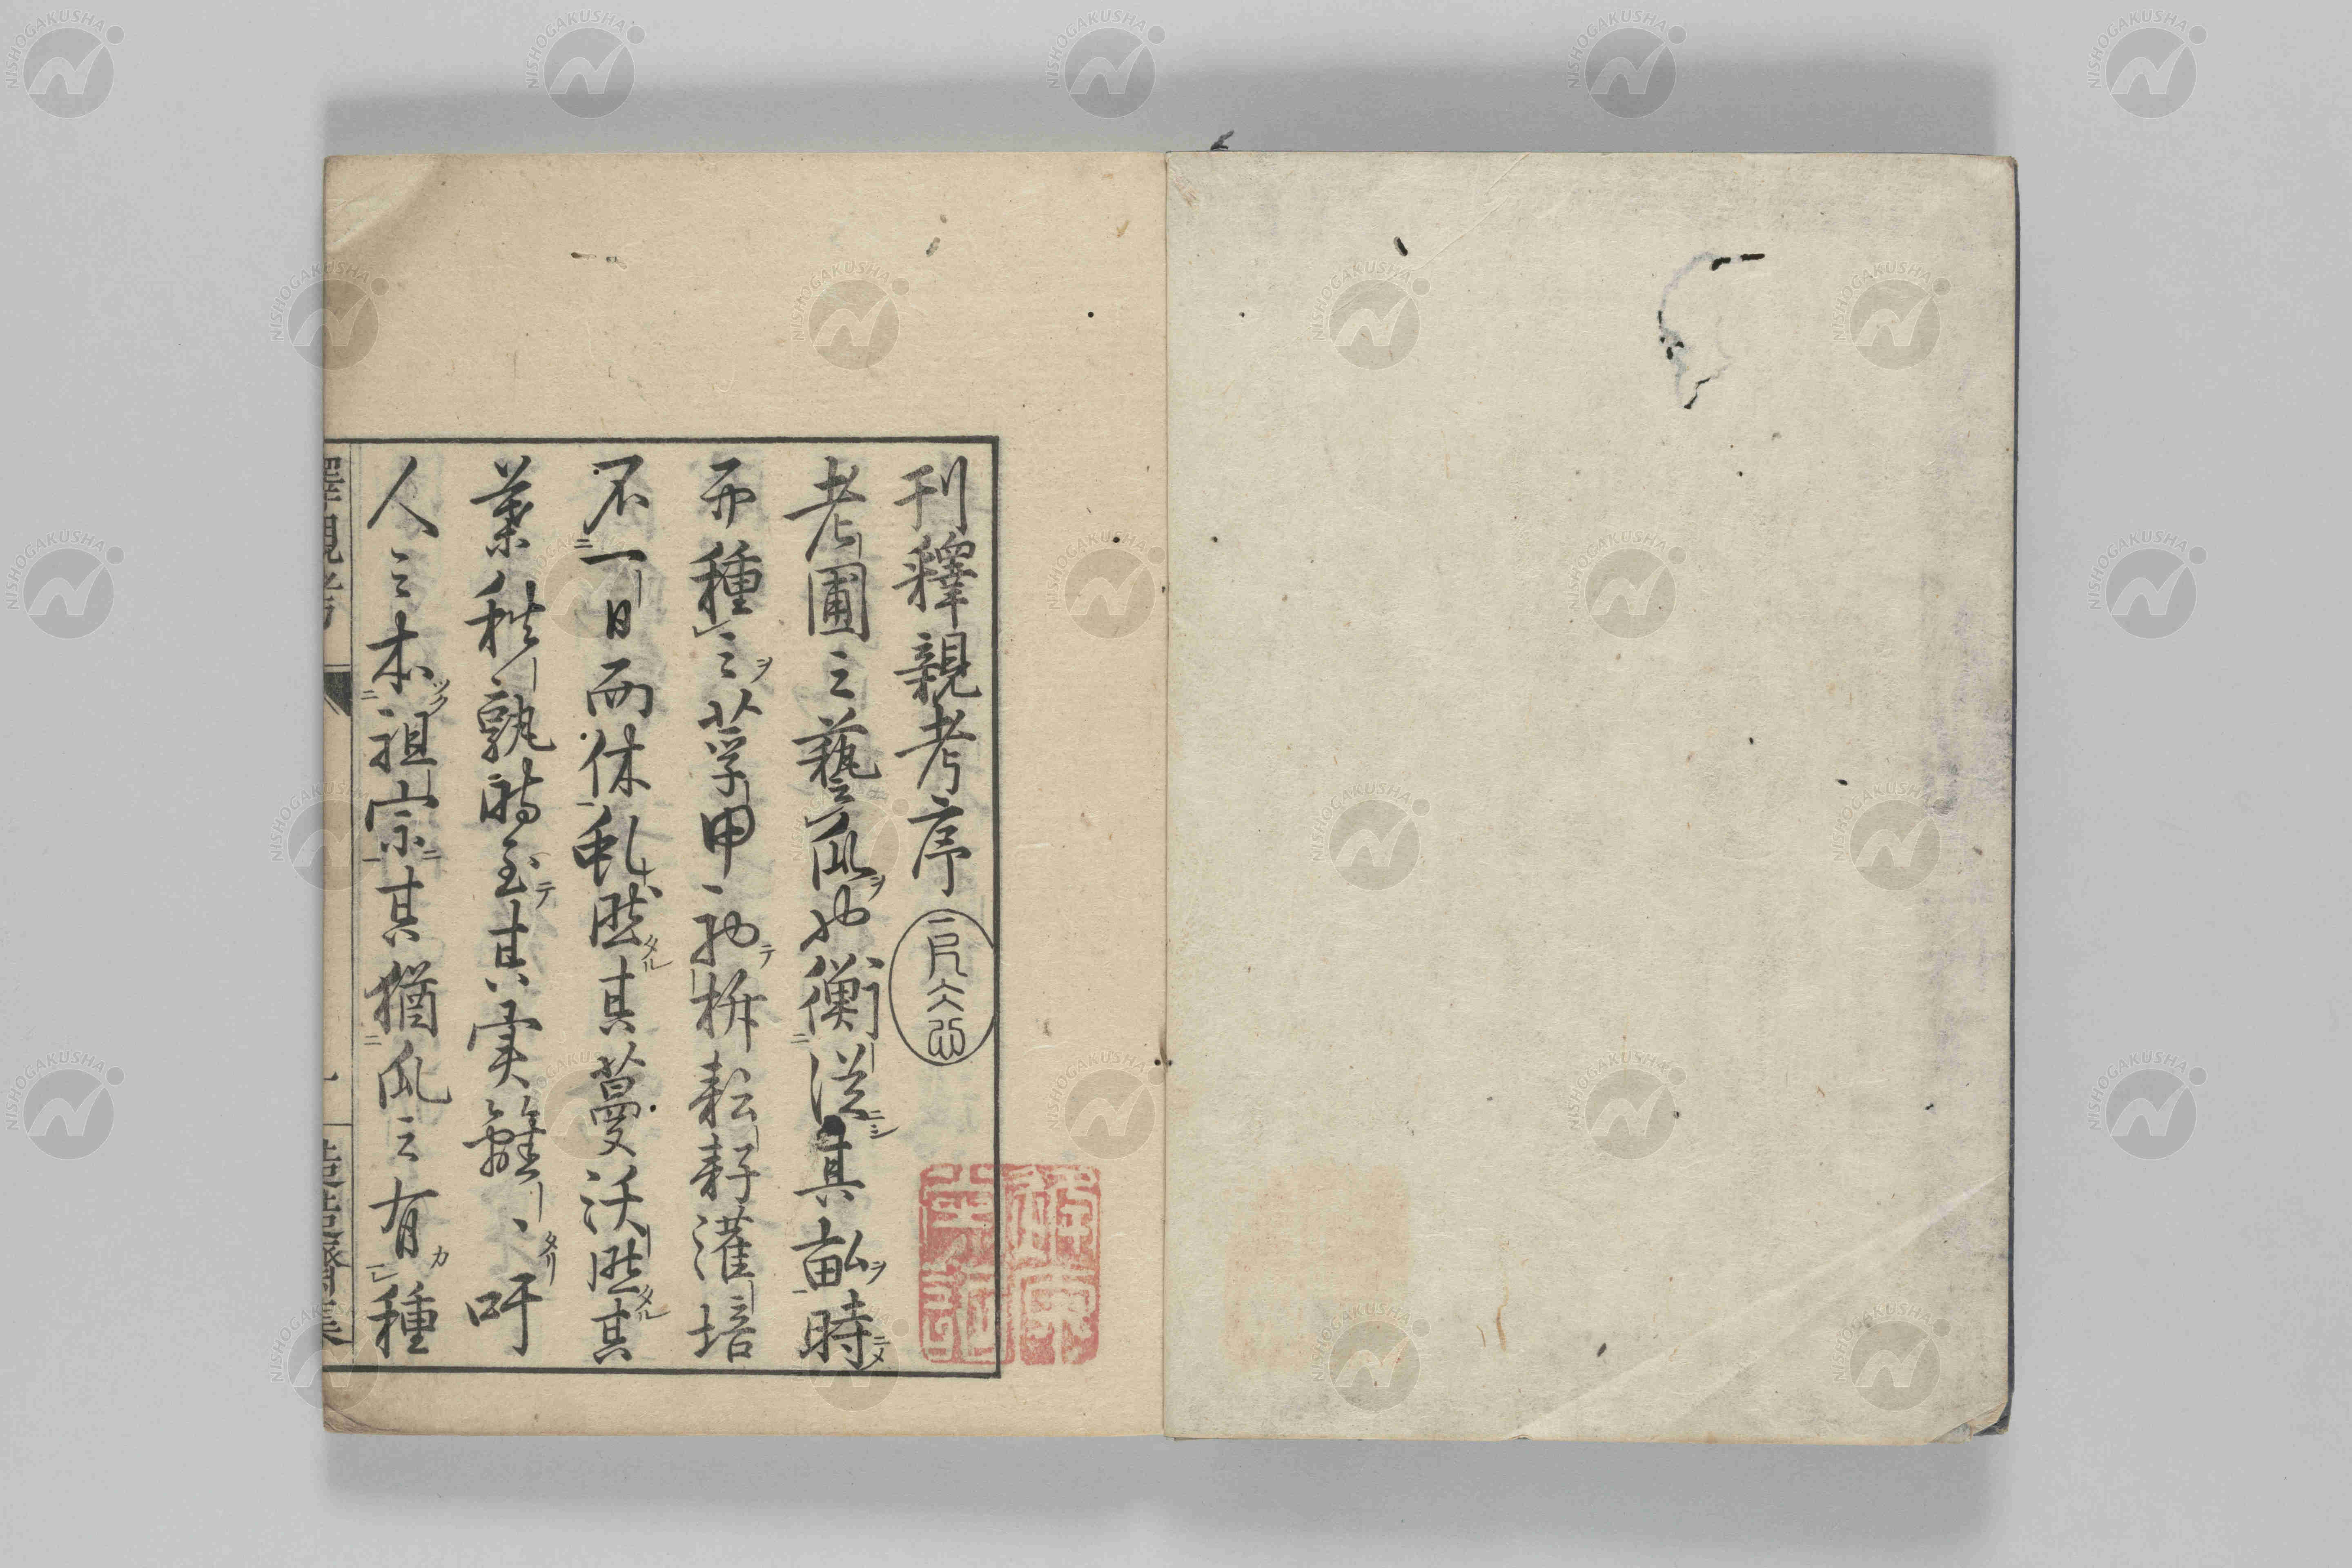 刊釋親考序
老圃之藝瓜也衡従其畝時
而種之莩甲一拆耘耔灌培
不一日而休亂然其蔓沃然其
葉秋孰時至其実離〻吁
人之本祖宗其猶瓜之有種
釋親考
NISHOGAKUSHA